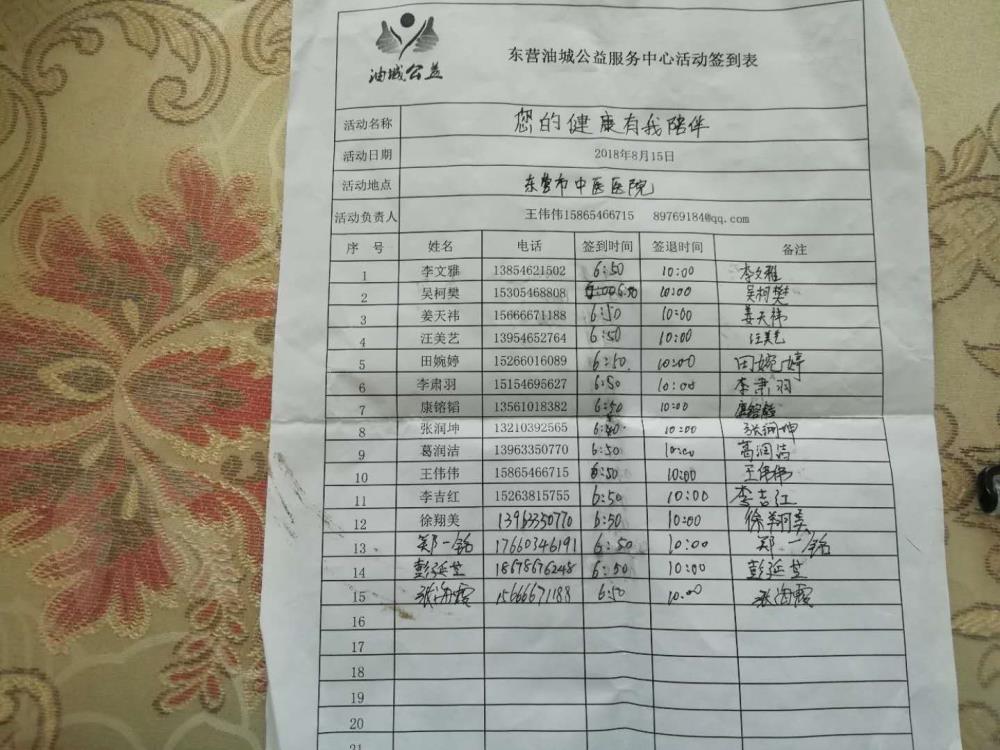 油城公益
东营油城公益服务中心活动签到表
活动名称 您的健康有我陪伴
活动日期 2018年8月15日
活动地点 东营市中医医院
活动负责人 王伟伟15865466715 89769184@qq.com
序 号 姓名 电话 签到时间 签退时间 备注
1 李文雅 13854621502 6:50 10:00 李文雅
2 吴柯樊 15305468808 6:50 10:00 吴柯樊
3 姜天祎 15666671188 6:50 10:00 姜天祎
4 汪美艺 13954652764 6:50 10:00 汪美艺
5 田婉婷 15266016089 6:50 10:00 田婉婷
6 李肃羽 15154695627 6:50 10:00 李肃羽
7 康镕韬 13561018382 6:50 10:00 康镕韬
8 张润坤 13210392565 6:40 10:00 张润坤
9 葛润洁 13963350770 6:50 10:00 葛润洁
10 王伟伟 15865466715 6:50 10:00 王伟伟
11 李吉红 15263815755 6:50 10:00 李吉红
12 徐翔美 13963350770 6:50 10:00 徐翔美
13 郑一铭 17660346191 6:50 10:00 郑一铭
14 彭延芝 18678676248 6:50 10:00 彭延芝
15 张海霞 15666671188 6:50 10:00 张海霞
16
17
18
19
20
21